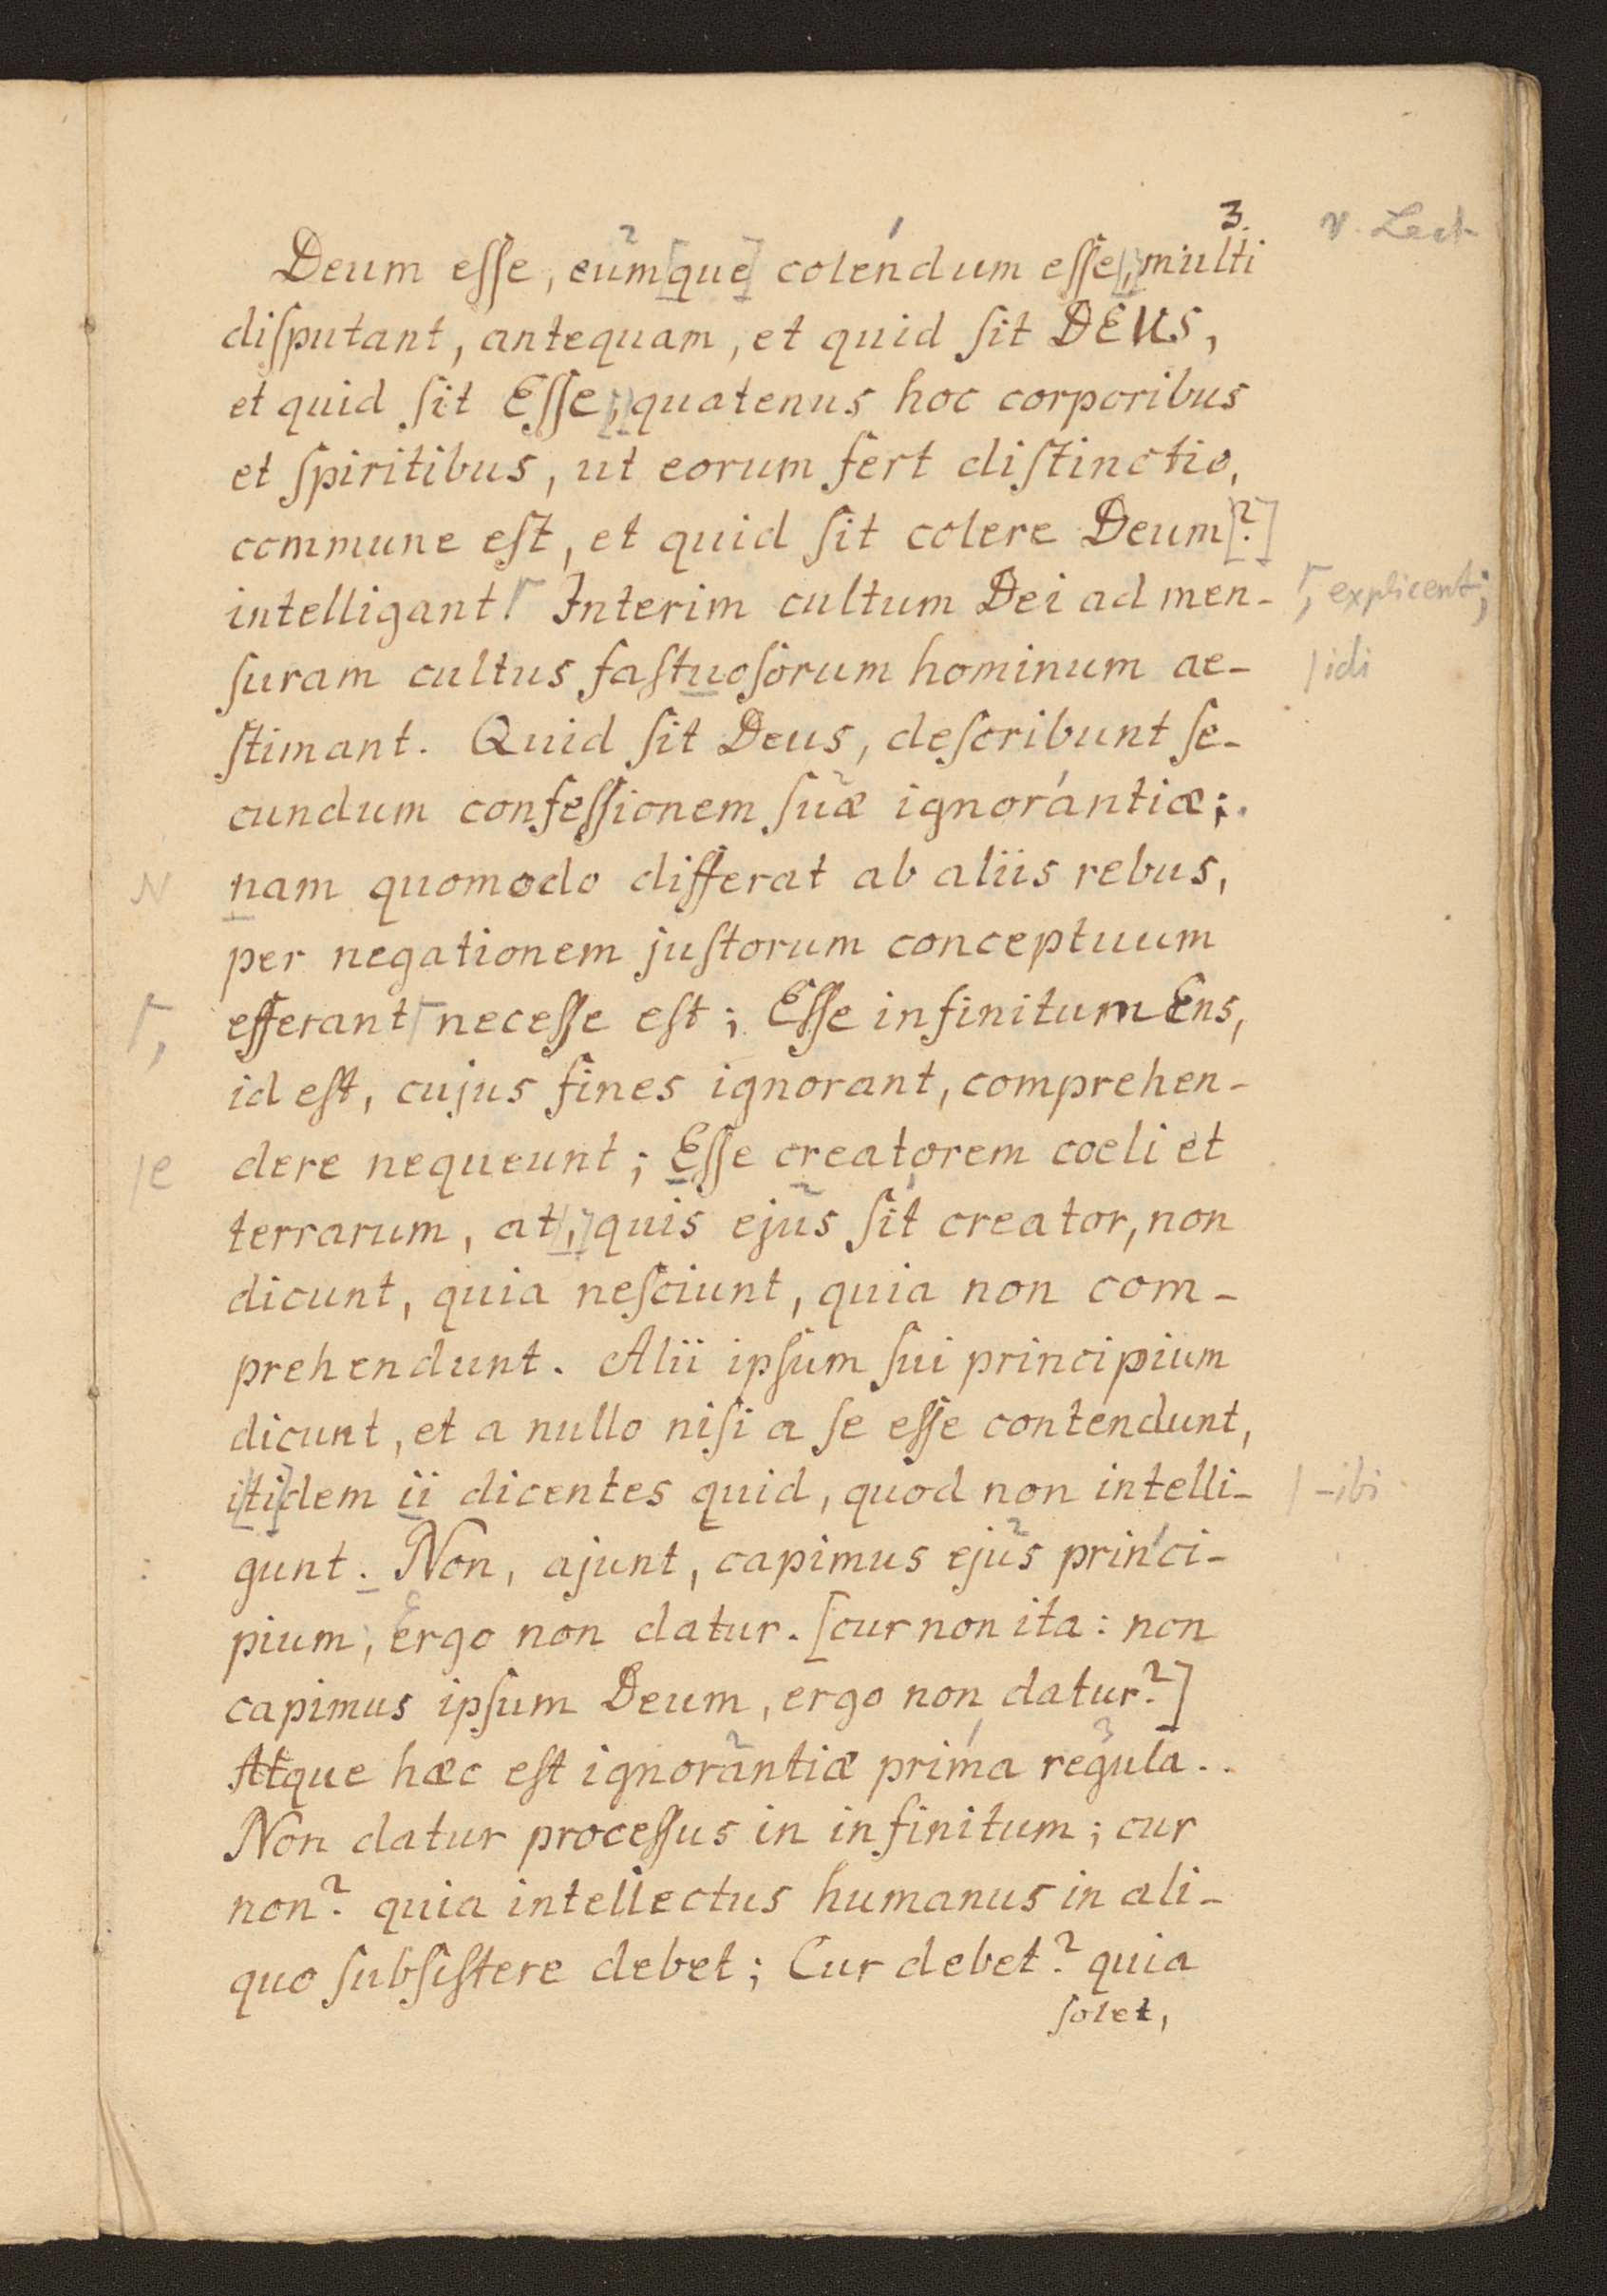 3.
v. Lect
Deum eſſe, eum[que] colendum eſſe[,] multi
diſputant, antequam, et quid ſit DEUS,
et quid ſit Eſſe[,] quatenus hoc corporibus
et ſpiritibus, ut eorum fert diſtinctio,
commune eſt, et quid ſit colere Deum[?]
intelligant! Interim cultum Dei ad men-
, explicent;
ſuram cultus faſtuoſorum hominum ae-
idi
ſtimant. Quid ſit Deus, deſcribunt ſe-
cundum confeſſionem ſuæ ignorantiæ;.
N nam quomodo differat ab aliis rebus,
per negationem juſtorum conceptuum
efferant necesſe eſt; Eſſe infinitum Ens,
id eſt, cujus fines ignorant, comprehen-
e dere nequeunt; Eſſe creatorem coeli et
terrarum, at[,] quis ejus ſit creator, non
dicunt, quia neſciunt, quia non com-
prehendunt. Alii ipſum ſui principium
dicunt, et a nullo niſi a ſe eſſe contendunt,
i[ti]dem ii dicentes quid, quod non intelli-
-ibi
: gunt. Non, ajunt, capimus ejus princi-
pium, ergo non datur. [cur non ita: non
capimus ipſum Deum, ergo non datur?]
Atque hæc eſt ignorantiæ prima regula..
Non datur proceſſus in infinitum; cur
non? quia intellectus humanus in ali-
quo ſubſiſtere debet; Cur debet? quia
ſolet,